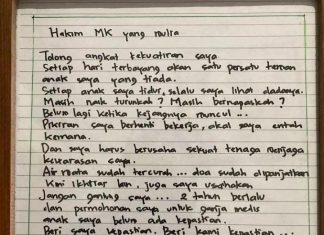 Hakim MK yang mulia
Tolong angkat kekuatiran saya
Setiap hari terbayang akan satu persatu teman
anak saya yang tiada.
Setiap anak saya tidur, selalu saya lihat dadanya.
Masih naik turunkah? Masih bernapaskah?
Belum lagi ketika kejangnya muncul...
Pikiran saya berhenti bekerja, akal saya entah
kemana.
Dan saya harus berusaha sekuat tenaga menjaga
kewarasan saya.
Air mata sudah tercurah... doa sudah dipanjatkan
Kini ikhtiar lain, juga saya usahakan
Jangan gantung saya... 2 tahun berlalu
dan permohonan saya untuk ganja medis
anak saya belum ada kepastian.
Beri saya kepastian. Beri kami kepastian...